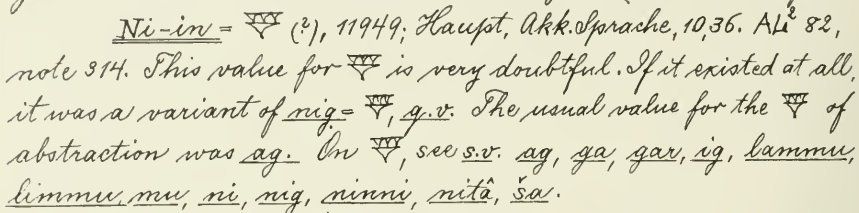 Ni-in = 𒐼 (?), 11949; Haupt, Akk. Sprache, 10,36. AL² 82,
note 314. This value for 𒐼 is very doubtful. If it existed at all,
it was a variant of nig = 𒐼, q.v. The usual value for the 𒐼 of
abstraction was ag. On 𒐼, see s.v. ag, ga, gar, ig, lammu,
limmu, mu, ni, nig, ninni, nitâ, ša.